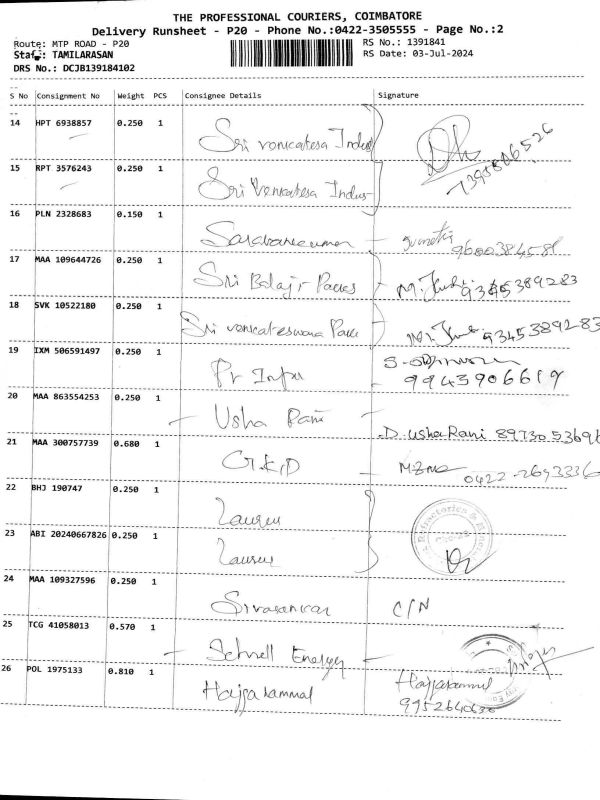 THE PROFESSIONAL COURIERS, COIMBATORE
Delivery Runsheet - P20 - Phone No.:0422-3505555 - Page No.:2
Route: MTP ROAD - P20
RS No.: 1391841
Staff: TAMILARASAN
RS Date: 03-Jul-2024
DRS No.: DCJB139184102
S No Consignment No Weight PCS Consignee Details Signature
14 HPT 6938857 0.250 1 Sri venkatesa Indus
15 RPT 3576243 0.250 1 Sri Venkatesa Indus
16 PLN 2328683 0.150 1
17 MAA 109644726 0.250 1 Sri Balaji Packs 9345389283
18 SVK 10522180 0.250 1 Sri venkateswara Pack 9345389283
19 IXM 506591497 0.250 1 Pr Infra 9943906619
20 MAA 863554253 0.250 1 - Usha Rani - D. Usha Rani 89730 53696
21 MAA 300757739 0.680 1 G.K.D - 0422-2693336
22 BHJ 190747 0.250 1
23 ABI 20240667826 0.250 1
24 MAA 109327596 0.250 1 Sivasankar C/N
25 TCG 41058013 0.570 1 - Schnell Energy -
26 POL 1975133 0.810 1 Hajjarammal Hajjarammal
9952640636